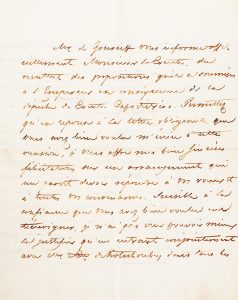 Mr de Gourieff vous informe offi-
ciellement, Monsieur le Comte, du
résultat des propositions qu'il a soumises
à l'Empereur en conséquence de la
dépêche du Comte Capodistrias. Permettez
qu'en réponse à la lettre obligeante que
vous avez bien voulu m'écrire à cette
occasion, je vous offre mes bien sincères
félicitations sur un arrangement qui
me paroît devoir répondre à vos voeux et
à toutes vos convenances. Sensible à la
confiance que vous avez bien voulu me
témoigner, je n'ai pas cru pouvoir mieux
la justifier qu'en entrant
avec dans tous les